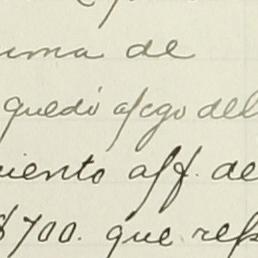 uma de
quedó afcgo del
iento aff. de
$700. que refe